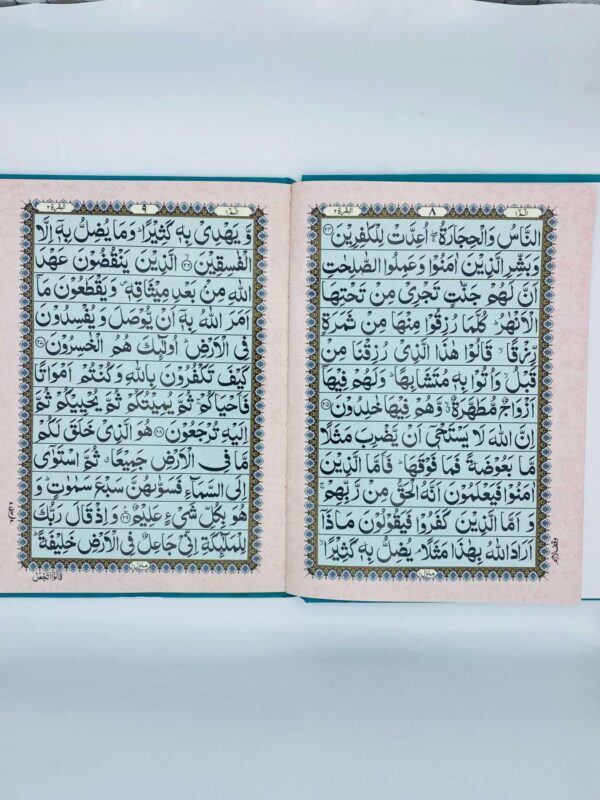 البقرة ٢
٨
الٓمّٓ ١
النَّاسُ وَالْحِجَارَةُ ۖۚ اُعِدَّتْ لِلْكٰفِرِيْنَ ﴿۲۴﴾
وَبَشِّرِ الَّذِيْنَ اٰمَنُوْا وَعَمِلُوا الصّٰلِحٰتِ
اَنَّ لَهُمْ جَنّٰتٍ تَجْرِىْ مِنْ تَحْتِهَا
الْاَنْهٰرُ ؕ كُلَّمَا رُزِقُوْا مِنْهَا مِنْ ثَمَرَةٍ
رِّزْقًا ۙ قَالُوْا هٰذَا الَّذِىْ رُزِقْنَا مِنْ
قَبْلُ وَاُتُوْا بِهٖ مُتَشَابِهًا ؕ وَلَهُمْ فِيْهَآ
اَزْوَاجٌ مُّطَهَّرَةٌ ۙ وَّهُمْ فِيْهَا خٰلِدُوْنَ ﴿۲۵﴾
اِنَّ اللّٰهَ لَا يَسْتَحْىٖٓ اَنْ يَّضْرِبَ مَثَلًا
مَّا بَعُوْضَةً فَمَا فَوْقَهَا ؕ فَاَمَّا الَّذِيْنَ
اٰمَنُوْا فَيَعْلَمُوْنَ اَنَّهُ الْحَقُّ مِنْ رَّبِّهِمْ ۚ
وَ اَمَّا الَّذِيْنَ كَفَرُوْا فَيَقُوْلُوْنَ مَاذَآ
اَرَادَ اللّٰهُ بِهٰذَا مَثَلًا ۘ يُضِلُّ بِهٖ كَثِيْرًا ۙ
البقرة ٢
٩
الٓمّٓ ١
وَّ يَهْدِىْ بِهٖ كَثِيْرًا ؕ وَمَا يُضِلُّ بِهٖٓ اِلَّا
الْفٰسِقِيْنَ ﴿۲۶﴾ الَّذِيْنَ يَنْقُضُوْنَ عَهْدَ
اللّٰهِ مِنْۢ بَعْدِ مِيْثَاقِهٖ ۪ وَيَقْطَعُوْنَ مَآ
اَمَرَ اللّٰهُ بِهٖٓ اَنْ يُّوْصَلَ وَ يُفْسِدُوْنَ
فِى الْاَرْضِ ؕ اُولٰٓئِكَ هُمُ الْخٰسِرُوْنَ ﴿۲۷﴾
كَيْفَ تَكْفُرُوْنَ بِاللّٰهِ وَكُنْتُمْ اَمْوَاتًا
فَاَحْيَاكُمْ ۚ ثُمَّ يُمِيْتُكُمْ ثُمَّ يُحْيِيْكُمْ ثُمَّ
اِلَيْهِ تُرْجَعُوْنَ ﴿۲۸﴾ هُوَ الَّذِىْ خَلَقَ لَكُمْ
مَّا فِى الْاَرْضِ جَمِيْعًا ۗ ثُمَّ اسْتَوٰٓى
اِلَى السَّمَآءِ فَسَوّٰىهُنَّ سَبْعَ سَمٰوٰتٍ ؕ وَ
هُوَ بِكُلِّ شَىْءٍ عَلِيْمٌ ﴿۲۹﴾ وَ اِذْ قَالَ رَبُّكَ
لِلْمَلٰٓئِكَةِ اِنِّىْ جَاعِلٌ فِى الْاَرْضِ خَلِيْفَةً ؕ
قَالُوْٓا اَتَجْعَلُ